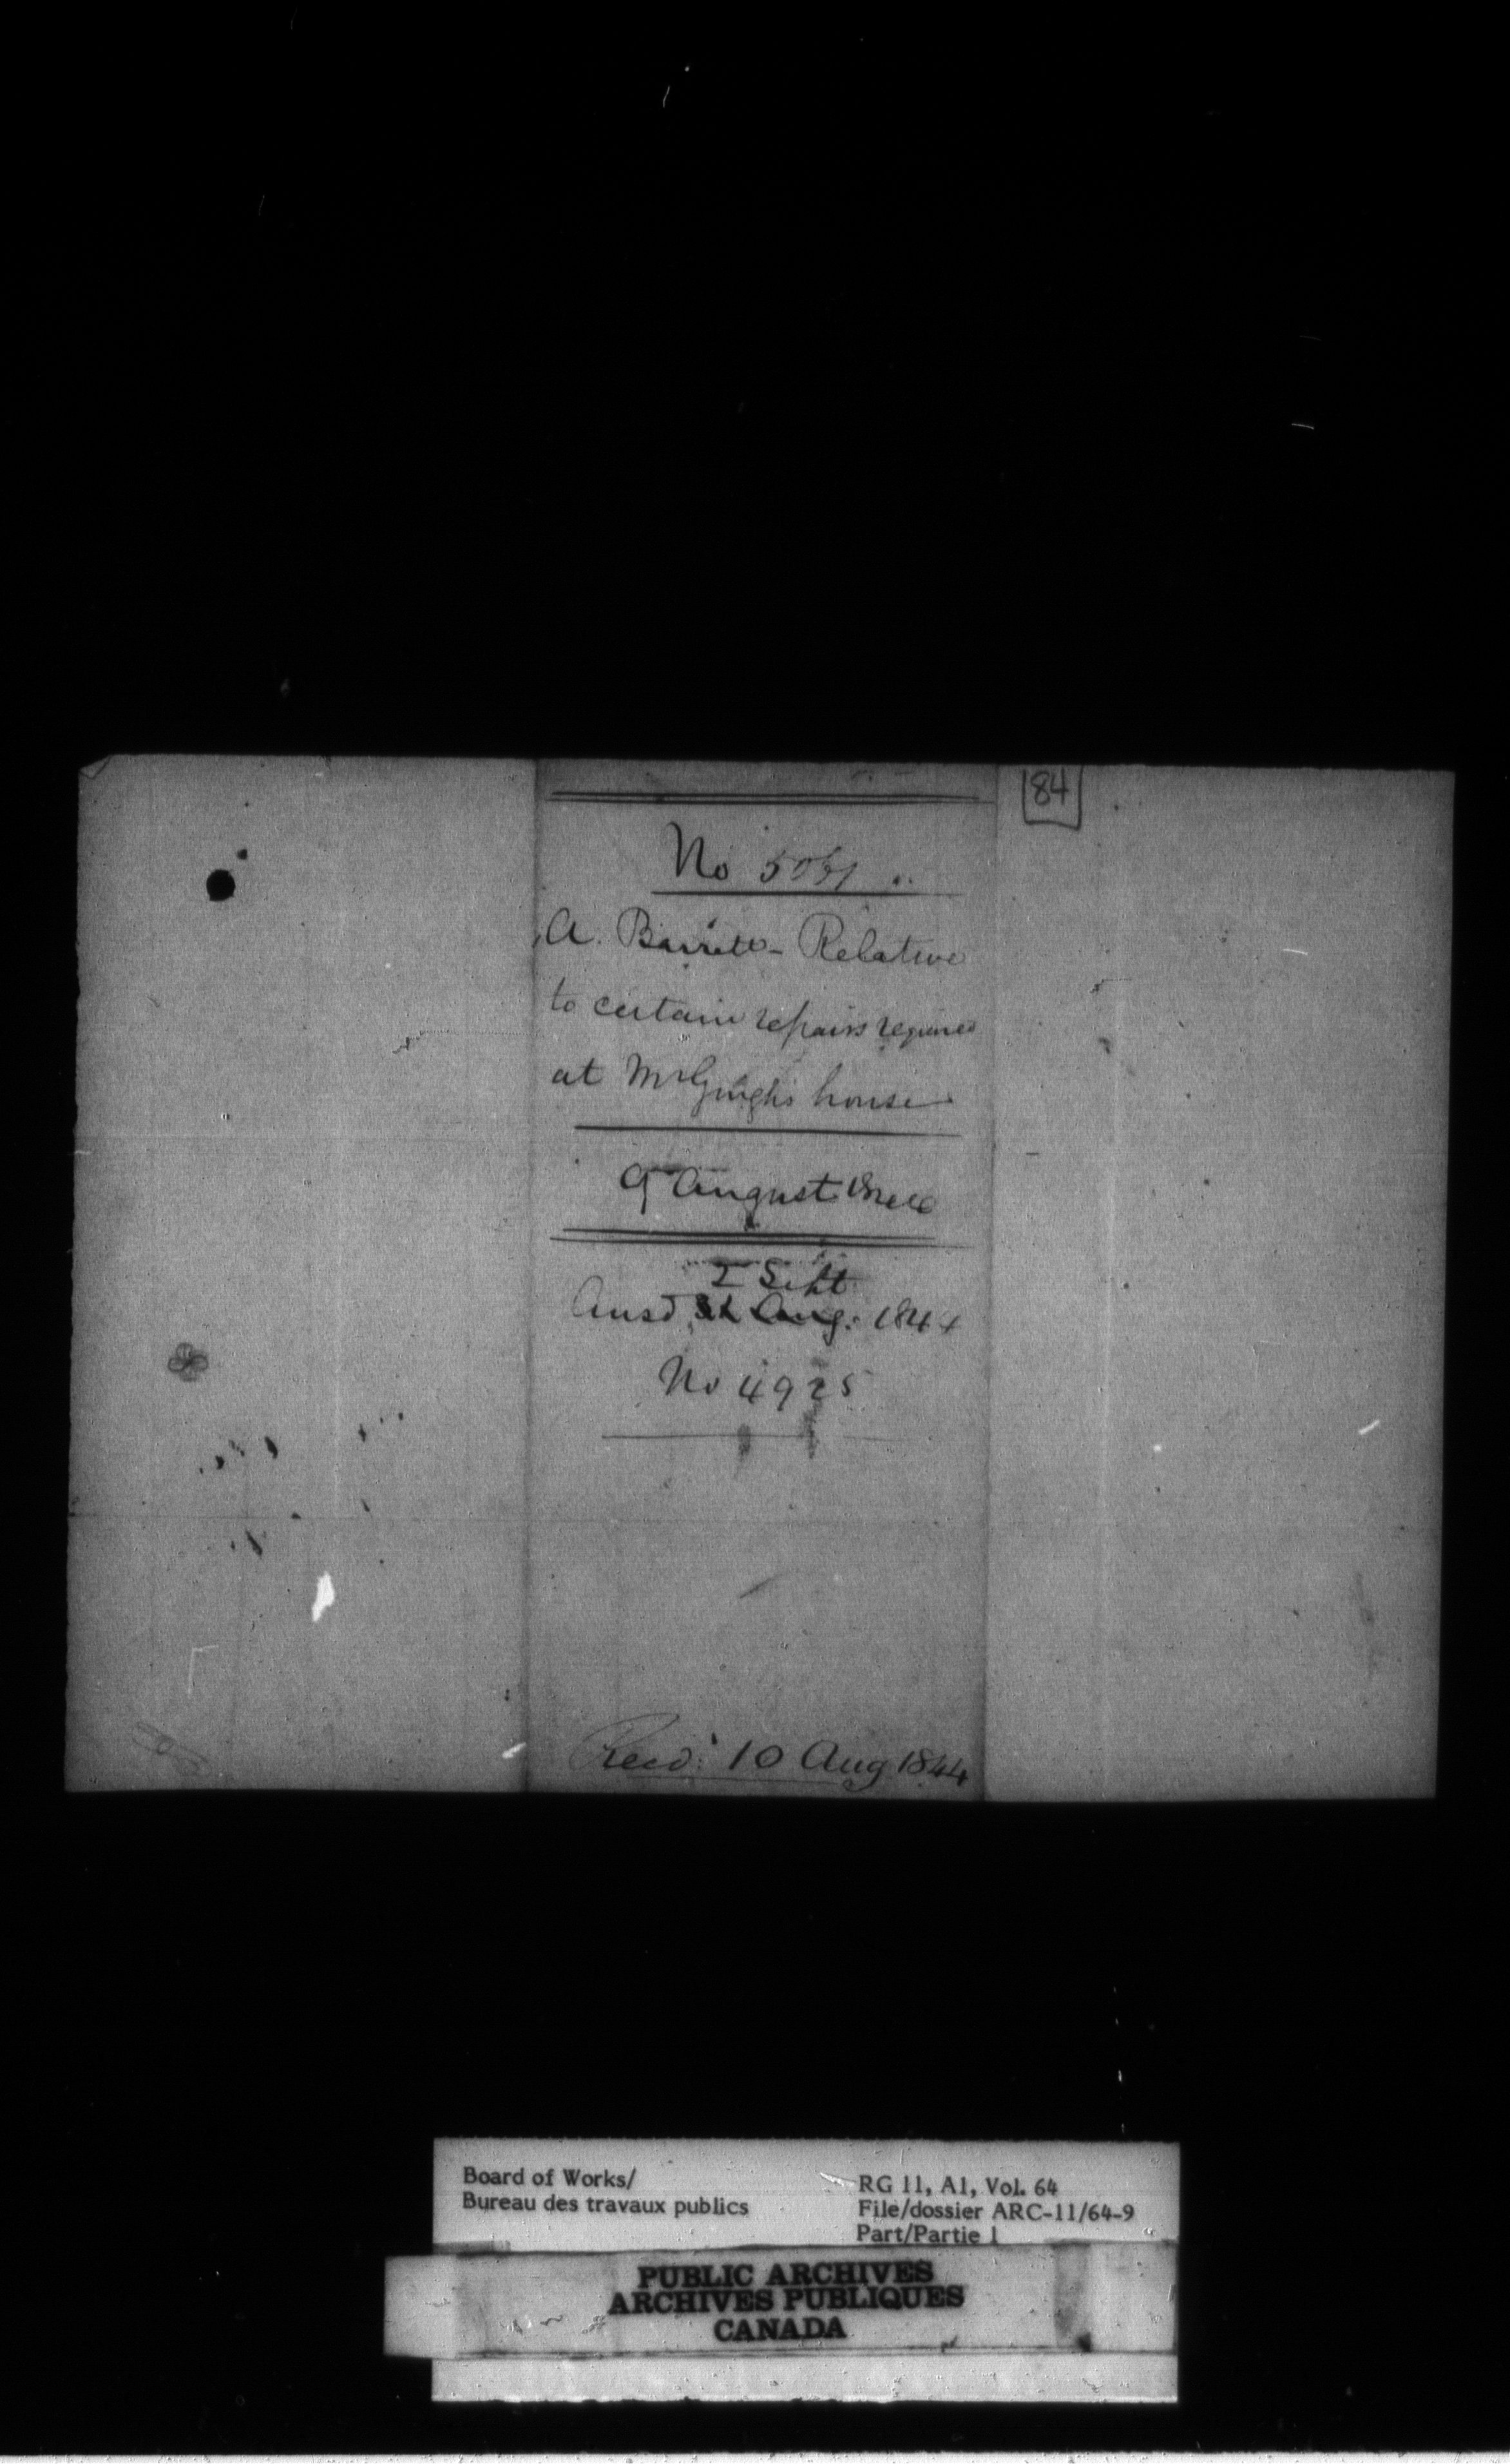 84
No 5061
A. Barrett - Relative
to certain repairs required
at house
9 August
2 Sept
Ansd 31 Aug: 1844
No 4925
Recd: 10 Aug 1844
Board of Works/
Bureau des travaux publics
RG 11, A1, Vol. 64
File/dossier ARC-11/64-9
Part/Partie 1
PUBLIC ARCHIVES
ARCHIVES PUBLIQUES
CANADA